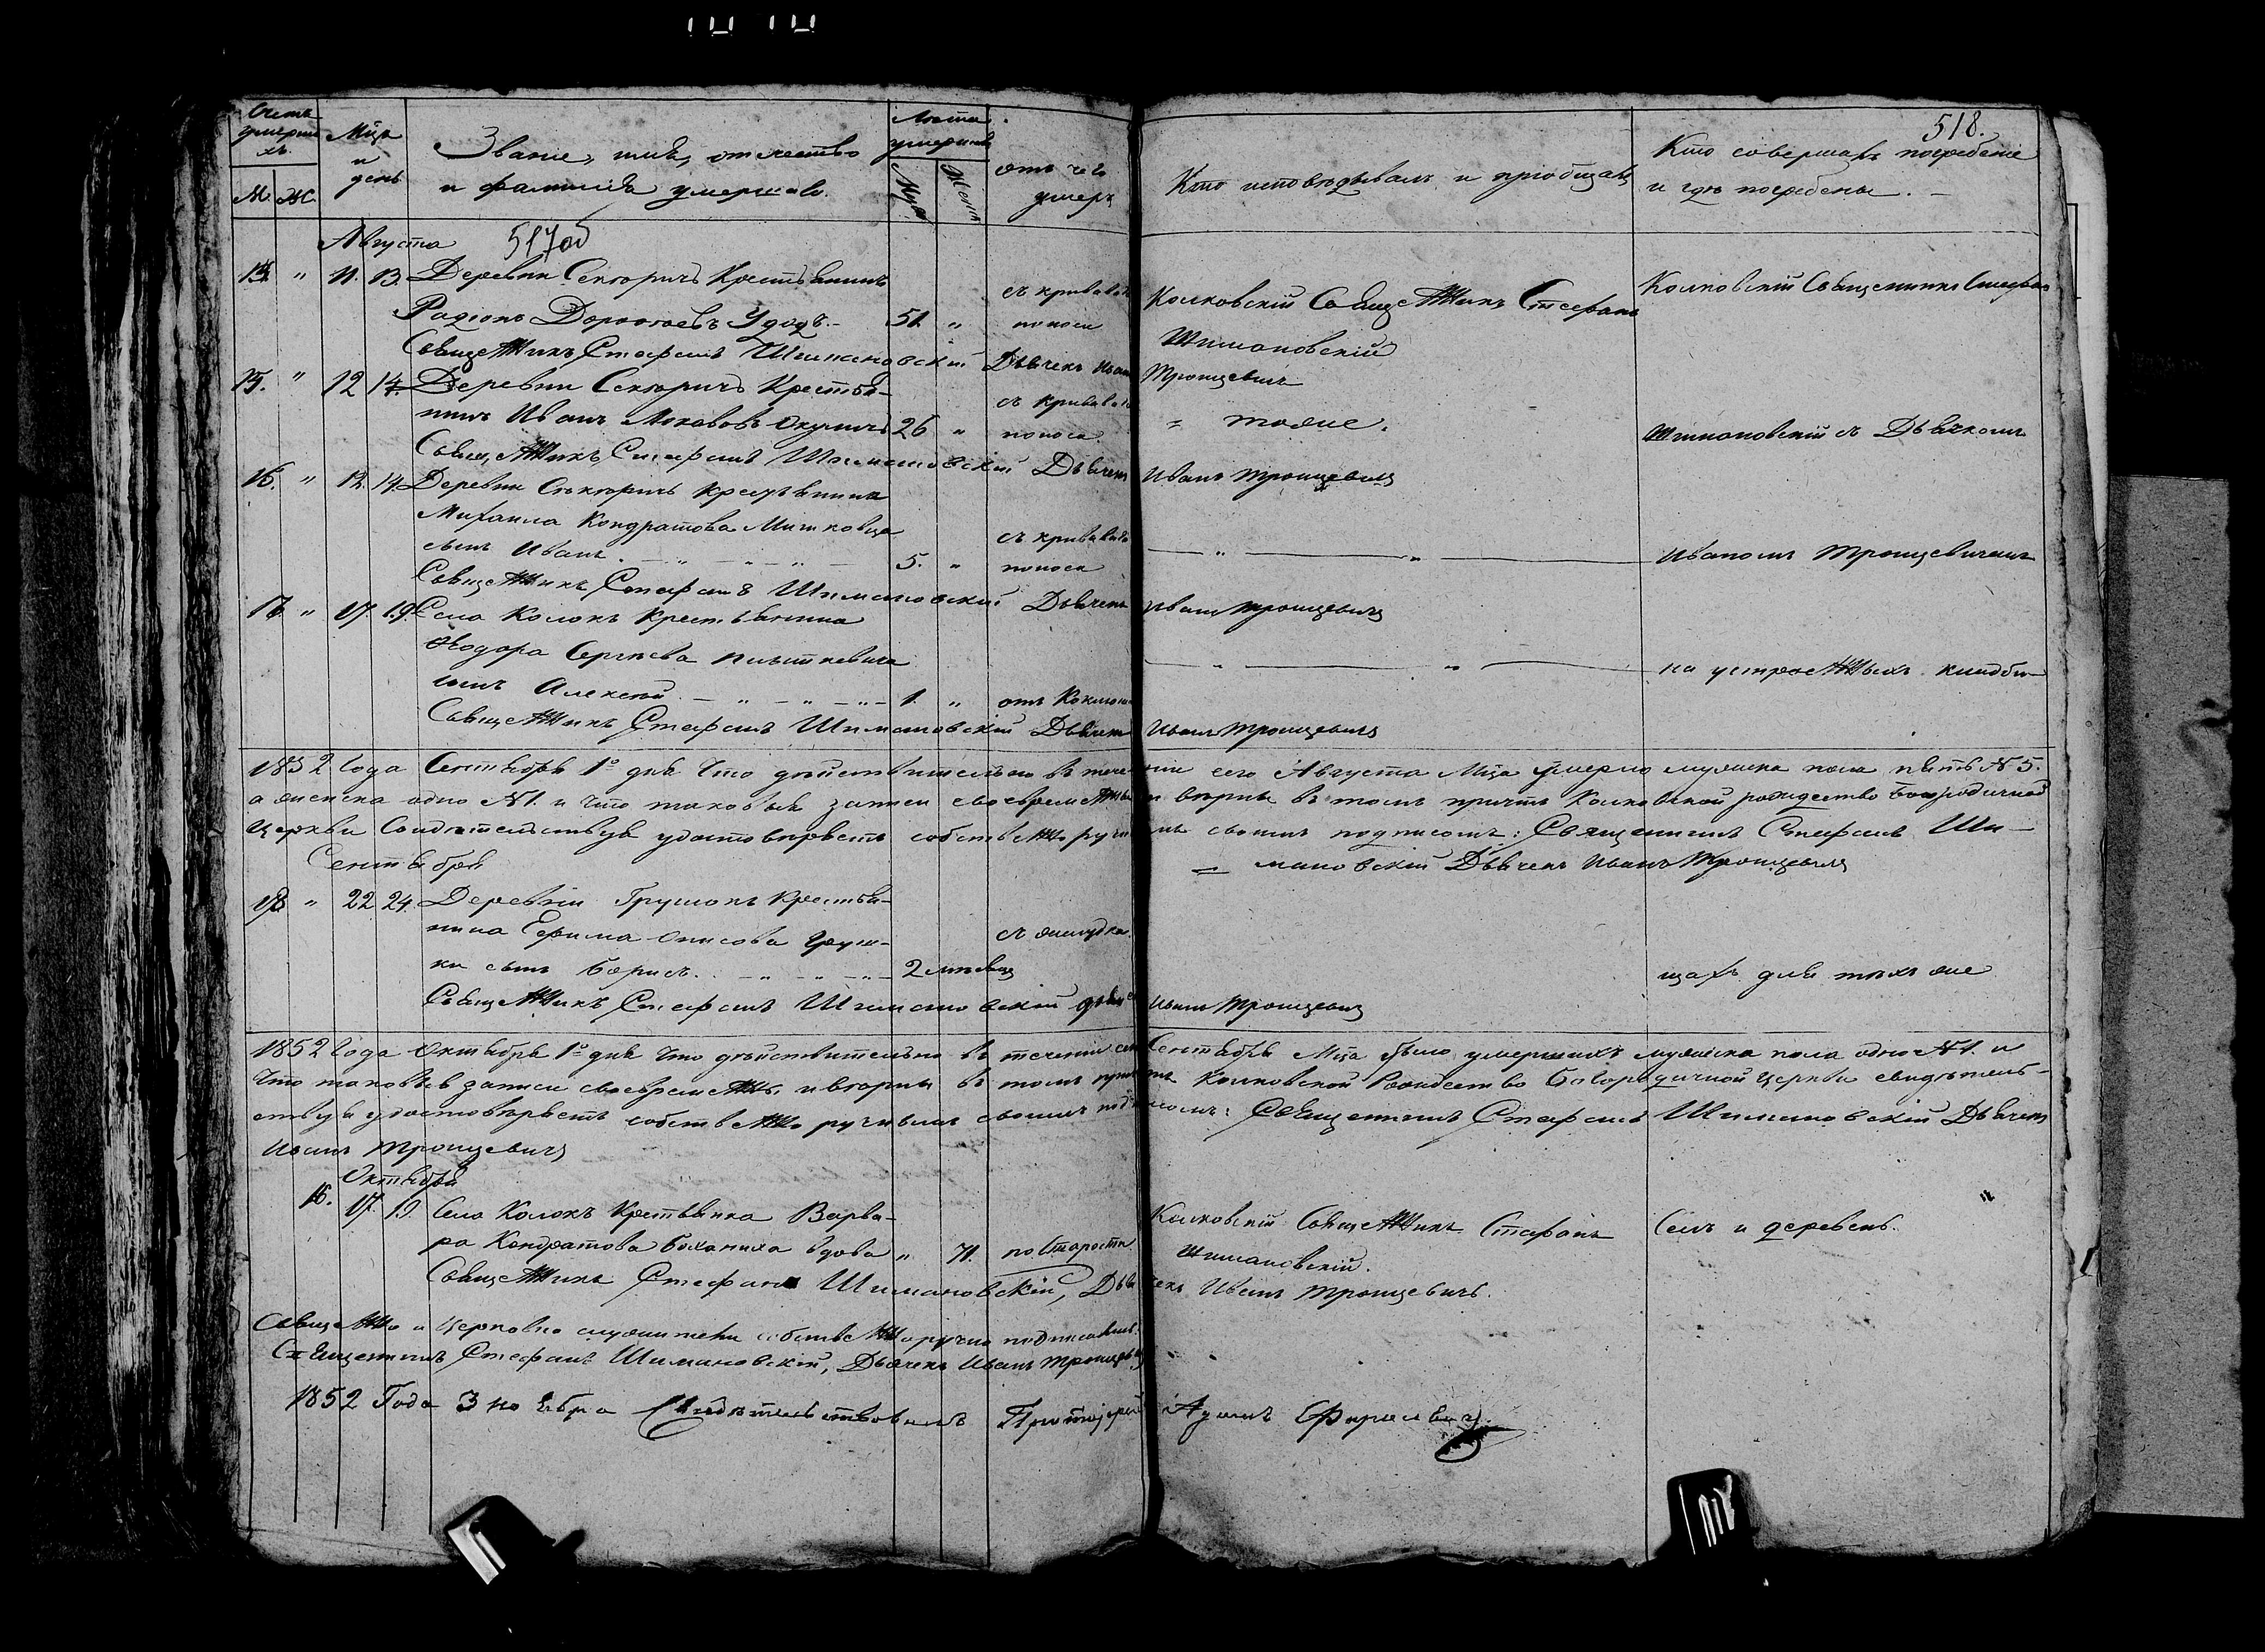 Счетъ умершихъ
Мца и день
Званіе, имя, отчество
и фамилія умершаго.
Лѣта умершихъ
отъ чего
умеръ
М. Ж.
Муж. Женс.
Кто исповѣдывалъ и пріобщалъ
518.
Кто совершалъ погребеніе
и гдѣ погребены.
Августа 517об
" 11. 13. Деревни Секюричъ Крестьянинъ
Родіонъ Удодъ. 51. "
съ криваваго
поноса
Священникъ Стефанъ Шимановскій Дьячекъ Иванъ Троицевичъ
Колковскій Священникъ Стефанъ
Шимановскій
Колковскій Священникъ Стефанъ
15. " 12 14. Деревни Секюричъ Крестья-
нинъ Иванъ 26 "
съ криваваго
поноса
= тоже.
Шимановскій съ Дьячкомъ
Священникъ Стефанъ Шимановскій Дьячекъ Иванъ Троицевичъ
16. " 12. 14. Деревни Секюричъ Крестьянина
Михаила Кондратова
сынъ Иванъ. 5. "
съ криваваго
поноса
Иваномъ Троицевичемъ
Священникъ Стефанъ Шимановскій Дьячекъ Иванъ Троицевичъ
17. " 17. 19. Села Колокъ Крестьянина
Ѳеодора Сергѣева
сынъ Алексѣй 1. "
отъ
на устроенныхъ кладби-
Священникъ Стефанъ Шимановскій Дьячекъ Иванъ Троицевичъ
1852 Года Сентября 1º дня Что дѣйствительно въ теченіи сего Августа Мца умерло мужеска пола пять №5.
а женска одно №1. и Что таковыя записи своевременны и вѣрны въ томъ причтъ Колковской рождество Богородичной
Церкви Свидѣтельствуя удостовѣряетъ собственноручнымъ своимъ подписомъ: Священникъ Стефанъ Ши-
= мановскій Дьячекъ Иванъ Троицевичъ
Сентября
18. " 22 24. Деревни Грушокъ Крестья-
нина Ефима Груш-
ки сынъ Борисъ. 2
съ желудка.
щахъ для тѣхъ же
Священникъ Стефанъ Шимановскій Дьячекъ Иванъ Троицевичъ
1852 Года Октября 1º дня Что дѣйствительно въ теченіи сего Сентября Мца было умершихъ мужеска пола одно №1. и
Что таковыя записи своевременны и вѣрны въ томъ причтъ Колковской Рождество Богородичной Церкви свидѣтель-
ствуя удостовѣряетъ собственноручнымъ своимъ подписомъ: Священникъ Стефанъ Шимановскій Дьячекъ
Иванъ Троицевичъ
Октября
16. 17. 19. Села Колокъ Крестьянка Варва-
ра Кондратова вдова " 71. по Старости
Колковскій Священникъ Стефанъ
Шимановскій.
Селъ и деревень.
Священникъ Стефанъ Шимановскій, Дьячекъ Иванъ Троицевичъ.
Священно и Церковно служители собственноручно подписались:
Священникъ Стефанъ Шимановскій, Дьячекъ Иванъ Троицевичъ
1852 Года 3 ноября Свидѣтельствовалъ Протоіерей Адамъ